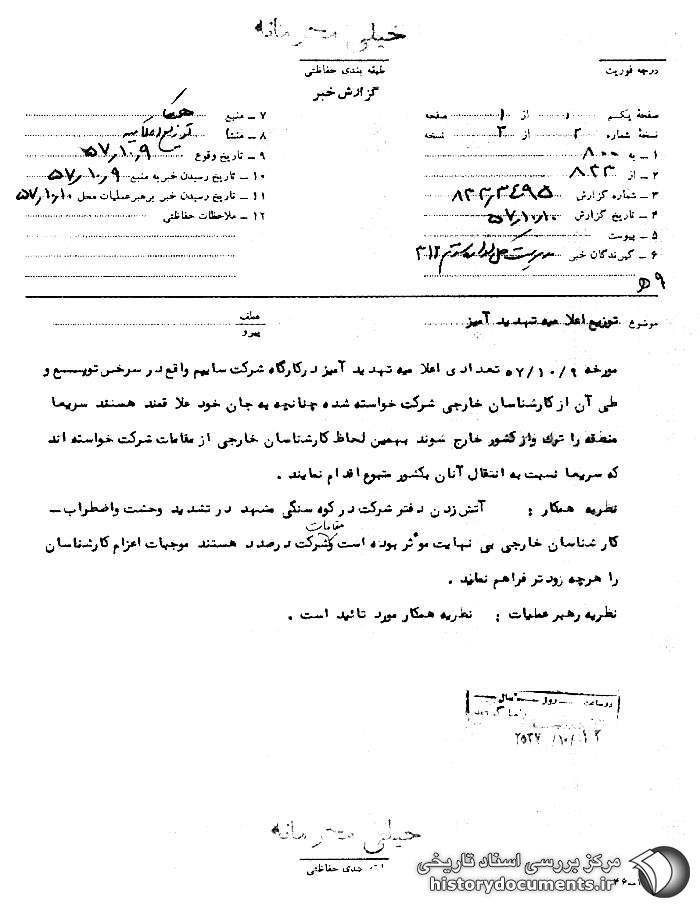 خیلی محرمانه
درجه فوریت
طبقه بندی حفاظتی
گزارش خبر
صفحهٔ یکم ۱ از ۱ صفحه
نسخهٔ شماره ۲ از ۳ نسخه
۱ ـ به ۸۰۰
۲ ـ از ۸۲۳
۳ ـ شماره گزارش
۴ ـ تاریخ گزارش ۵۷٫۱۰٫۱۰
۵ ـ پیوست
۶ ـ گیرندگان خبر مدیریت کل اداره سوم ۳۱۲
۷ ـ منبع همکار
۸ ـ منشأ توزیع اعلامیه
۹ ـ تاریخ وقوع ۵۷٫۱۰٫۹
۱۰ ـ تاریخ رسیدن خبر به منبع ۵۷٫۱۰٫۹
۱۱ ـ تاریخ رسیدن خبر برهبر عملیات محل ۵۷٫۱۰٫۱۰
۱۲ ـ ملاحظات حفاظتی
موضوع توزیع اعلا میه تهدید آمیز
عطف
پیرو
مورخه ۵۷/۱۰/۹ تعدادی اعلا میه تهدید آمیز درکارگاه شرکت سایپم واقع در سرخس توزیع و
طی آن از کارشناسان خارجی شرکت خواسته شده چنانچه به جان خود علا قمند هستند سریعا
منطقه را ترک واز کشور خارج شوند بهمین لحاظ کارشناسان خارجی از مقامات شرکت خواسته اند
که سریعا نسبت به انتقال آنان بکشور متبوع اقدام نمایند .
نظریه همکار : آتش زدن دفتر شرکت در کوه سنگی مشهد در تشدید وحشت واضطراب ـ
کارشناسان خارجی بی نهایت مؤثر بوده است و مقامات شرکت درصدد هستند موجبات اعزام کارشناسان
را هرچه زودتر فراهم نماید .
نظریه رهبر عملیات : نظریه همکار مورد تائید است .
خیلی محرمانه
بندی حفاظتی
مرکز بررسی اسناد تاریخی
historydocuments.ir